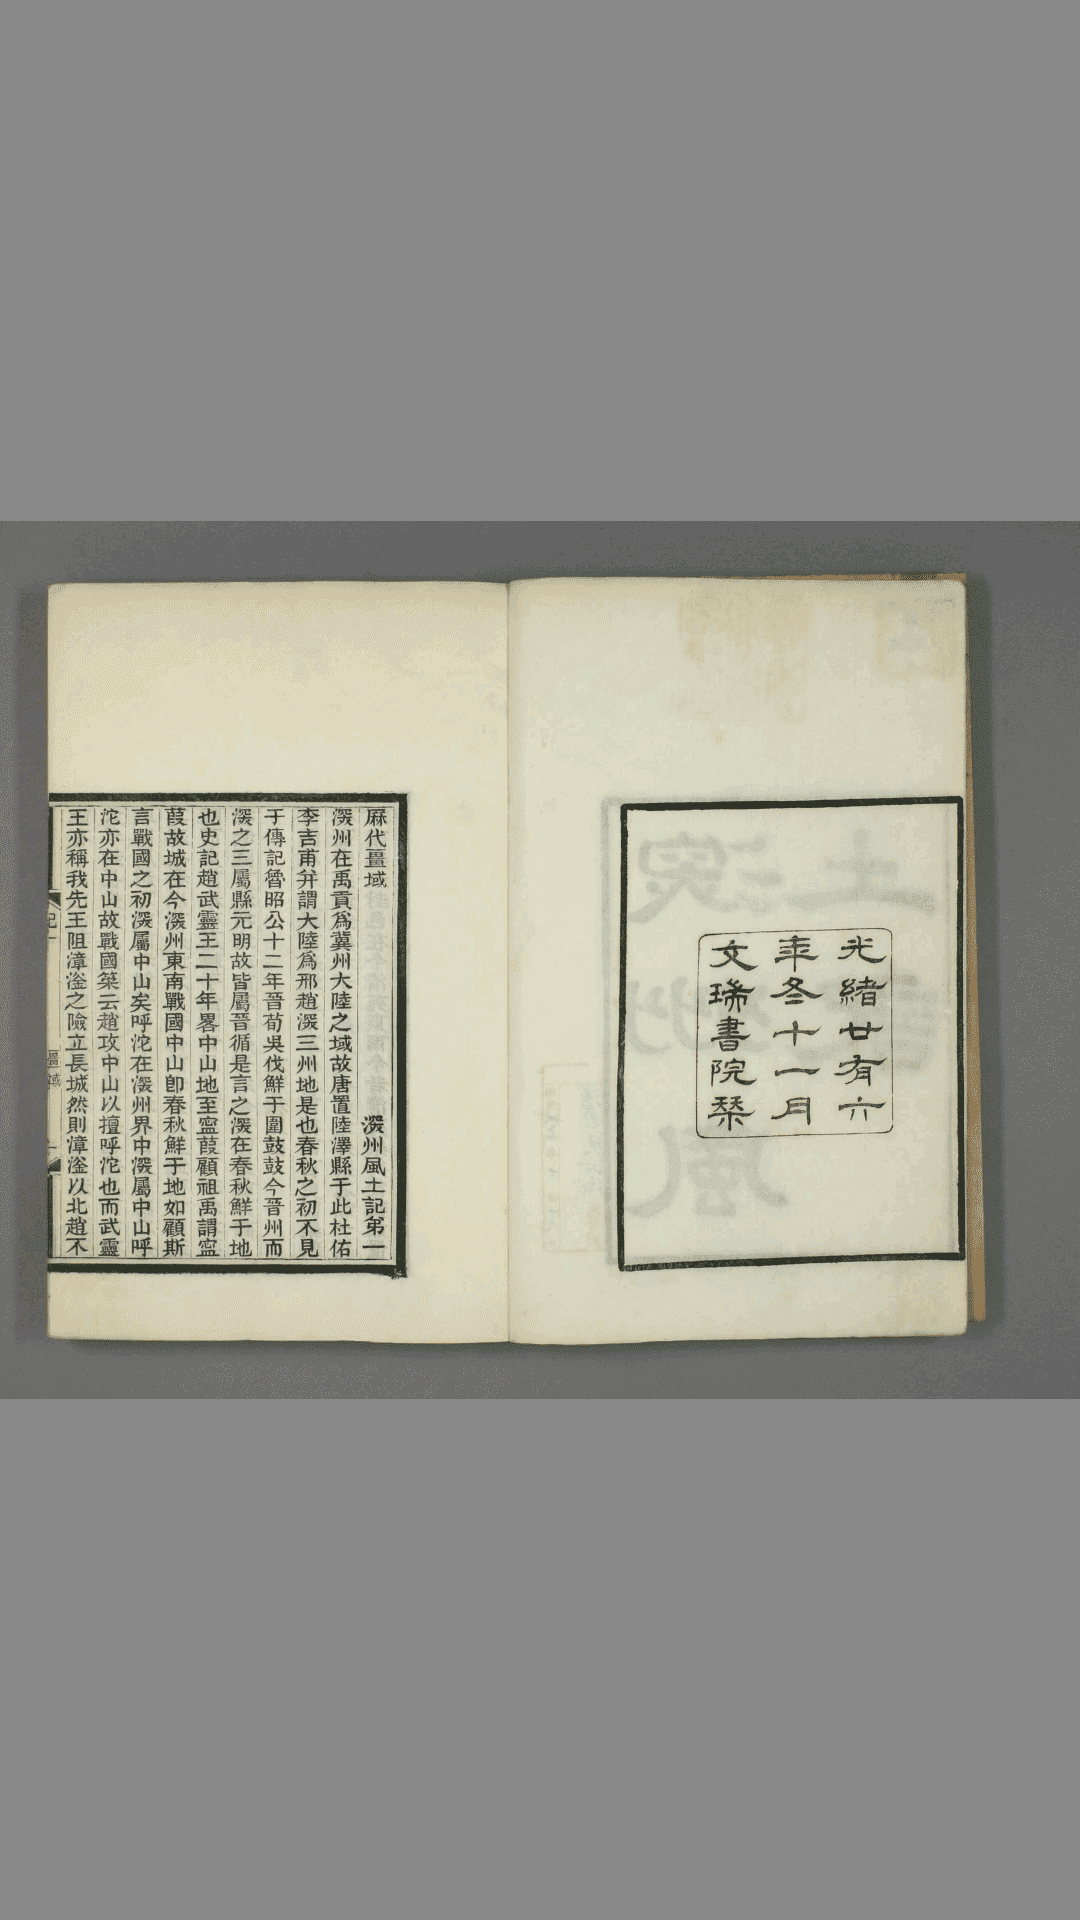 光緒廿有六
年冬十一月
文瑞書院栞
厤代畺域　深州風土記第一
深州在禹貢爲冀州大陸之域故唐置陸澤縣于此杜佑
李吉甫幷謂大陸爲邢趙深三州地是也春秋之初不見
于傳記魯昭公十二年晉荀吳伐鮮于圍鼓鼓今晉州而
深之三屬縣元明故皆屬晉循是言之深在春秋鮮于地
也史記趙武靈王二十年畧中山地至寍葭顧祖禹謂寍
葭故城在今深州東南戰國中山卽春秋鮮于地如顧斯
言戰國之初深屬中山矣呼沱在深州界中深屬中山呼
沱亦在中山故戰國筞云趙攻中山以擅呼沱也而武靈
王亦稱我先王阻漳滏之險立長城然則漳滏以北趙不